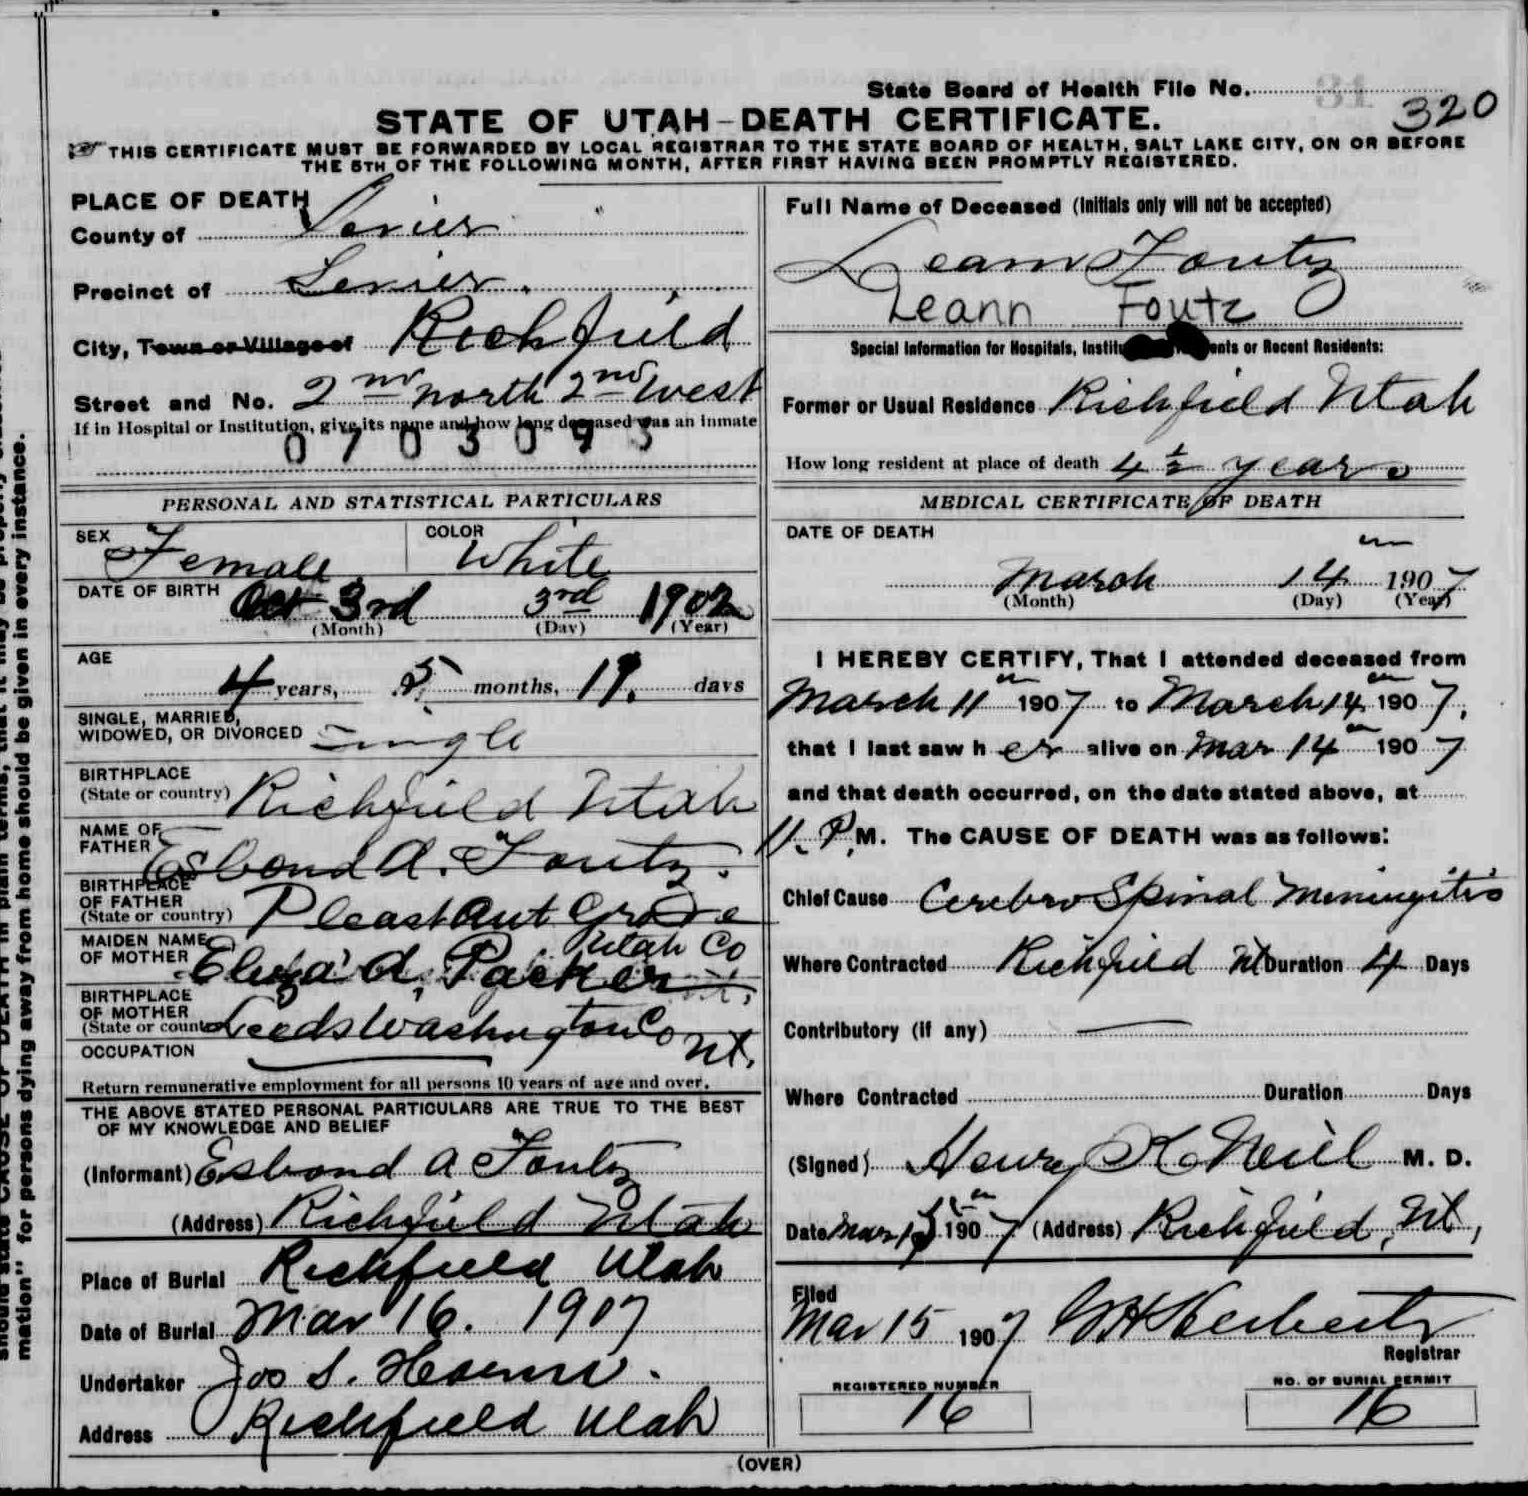 State Board of Health File No. 320
STATE OF UTAH-DEATH CERTIFICATE.
THIS CERTIFICATE MUST BE FORWARDED BY LOCAL REGISTRAR TO THE STATE BOARD OF HEALTH, SALT LAKE CITY, ON OR BEFORE
THE 5TH OF THE FOLLOWING MONTH, AFTER FIRST HAVING BEEN PROMPTLY REGISTERED.
PLACE OF DEATH
County of Sevier
Precinct of Sevier
City, Town or Village of Richfield
Street and No. 2nd North 2nd West
If in Hospital or Institution, give its name and how long deceased was an inmate
0703093
PERSONAL AND STATISTICAL PARTICULARS
SEX Female COLOR White
DATE OF BIRTH Oct 3rd 3rd 1902
(Month) (Day) (Year)
AGE 4 years, 5 months, 19. days
SINGLE, MARRIED,
WIDOWED, OR DIVORCED Single
BIRTHPLACE
(State or country) Richfield Utah
NAME OF
FATHER Esbond A. Foutz.
BIRTHPLACE
OF FATHER
(State or country) Pleasant Grove
Utah Co
MAIDEN NAME
OF MOTHER Eliza A. Packer
BIRTHPLACE
OF MOTHER
(State or country) Leeds Washington Co Ut.
OCCUPATION
Return remunerative employment for all persons 10 years of age and over.
THE ABOVE STATED PERSONAL PARTICULARS ARE TRUE TO THE BEST
OF MY KNOWLEDGE AND BELIEF
(Informant) Esbond A Foutz
(Address) Richfield Utah
Place of Burial Richfield Utah
Date of Burial Mar 16. 1907
Undertaker Jos S.
Address Richfield Utah
Full Name of Deceased (Initials only will not be accepted)
Leann Foutz
Leann Foutz
Special Information for Hospitals, Instit ents or Recent Residents:
Former or Usual Residence Richfield Utah
How long resident at place of death 4 1/2 years
MEDICAL CERTIFICATE OF DEATH
DATE OF DEATH
March 14 1907
(Month) (Day) (Year)
I HEREBY CERTIFY, That I attended deceased from
March 11 1907 to March 14 1907,
that I last saw her alive on Mar 14 1907
and that death occurred, on the date stated above, at
11. P.M. The CAUSE OF DEATH was as follows:
Chief Cause Cerebro Spinal Meningitis
Where Contracted Richfield Ut Duration 4 Days
Contributory (if any)
Where Contracted Duration Days
(Signed) Henry K Neill M. D.
Date Mar 15 1907 (Address) Richfield, Ut,
Filed
Mar 15 1907
Registrar
REGISTERED NUMBER
16
NO. OF BURIAL PERMIT
16
(OVER)
mation" for persons dying away from home should be given in every instance.